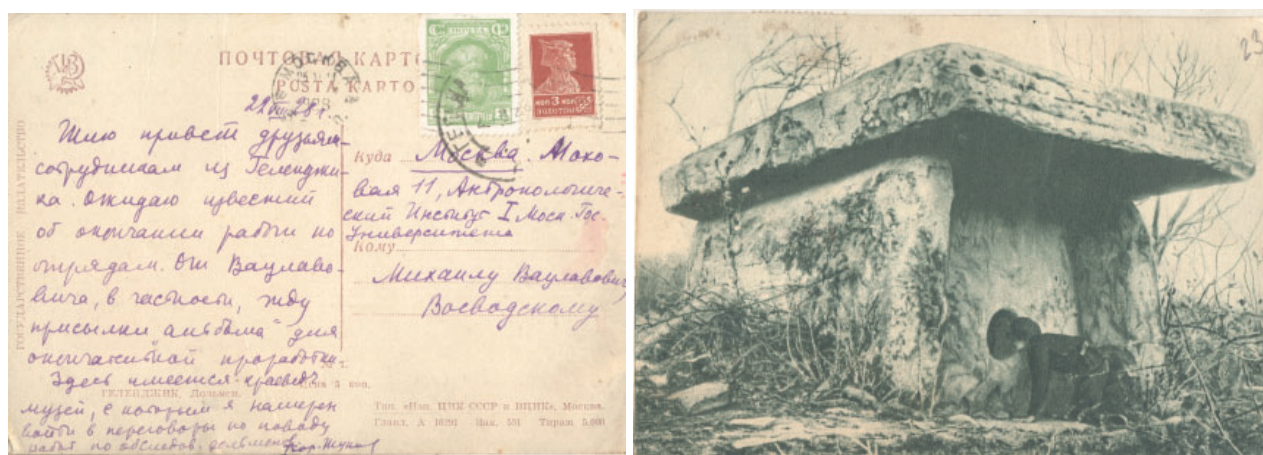 ПОЧТОВАЯ КАРТО
POŜTA KARTO
МОСКВА
21 VIII 28 г.
Шлю привет друзьям-
сотрудникам из Геленджи-
ка. Ожидаю известий
об окончании работы по
отрядам. От Вацлаво-
вича, в частности, жду
присылки альбома для
окончательной проработки.
Здесь имеется краевед.
музей, с которым я намерен
войти в переговоры по поводу
работ по обследов. дольменов
Куда Москва. Мохо-
вая 11, Антропологиче-
ский Институт I Моск. Гос.
Университета
Кому
Михаилу Вацлавовичу
Воеводскому
КОП 3 КОП
ЗОЛОТОМ
ГОСУДАРСТВЕННОЕ ИЗДАТЕЛЬСТВО
№ 7.
ГЕЛЕНДЖИК. Дольмен.
Цена 5 коп.
Тип. «Изв. ЦИК СССР и ВЦИК», Москва.
Главл. А 10791 Зак. 551 Тираж 5.000
23